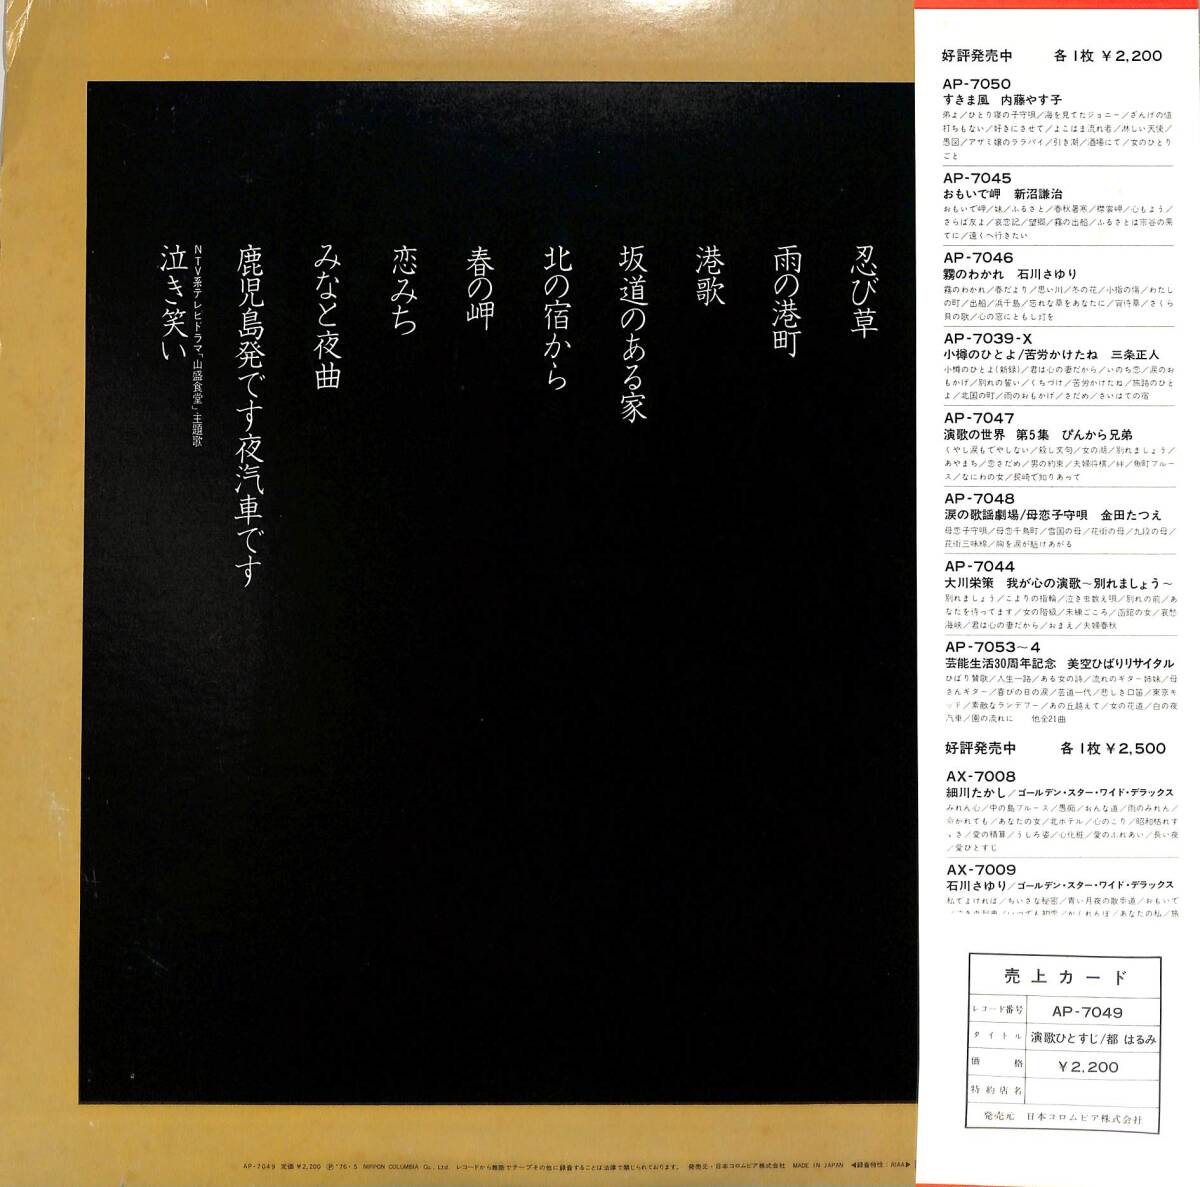 忍び草
雨の港町
港歌
坂道のある家
北の宿から
春の岬
恋みち
みなと夜曲
鹿児島発です夜汽車です
NTV系テレビドラマ「山盛食堂」主題歌
泣き笑い
AP-7049 定価¥2,200 Ⓟ'76・5 NIPPON COLUMBIA Co., Ltd. レコードから無断でテープその他に録音することは法律で禁じられております。 発売元・日本コロムビア株式会社 MADE IN JAPAN ◀録音特性:RIAA▶
好評発売中 各1枚 ¥2,200
AP-7050
すきま風 内藤やす子
弟よ/ひとり寝の子守唄/海を見てたジョニー/ざんげの値
打ちもない/好きにさせて/よこはま流れ者/淋しい天使/
愚図/アザミ嬢のララバイ/引き潮/酒場にて/女のひとり
ごと
AP-7045
おもいで岬 新沼謙治
おもいで岬/妹/ふるさと/春秋暑寒/襟裳岬/心もよう/
さらば友よ/哀恋記/望郷/霧の出船/ふるさとは宗谷の果
てに/遠くへ行きたい
AP-7046
霧のわかれ 石川さゆり
霧のわかれ/春だより/思い川/冬の花/小指の傷/わたし
の町/出船/浜千鳥/忘れな草をあなたに/宵待草/さくら
貝の歌/心の窓にともし灯を
AP-7039-X
小樽のひとよ/苦労かけたね 三条正人
小樽のひとよ(新録)/君は心の妻だから/いのち恋/涙のお
もかげ/別れの誓い/くちづけ/苦労かけたね/旅路のひと
よ/北国の町/雨のおもかげ/さだめ/さいはての宿
AP-7047
演歌の世界 第5集 ぴんから兄弟
くやし涙もでやしない/殺し文句/女の湖/別れましょう/
あやまち/恋さだめ/男の約束/夫婦将棋/絆/魚町ブルー
ス/なにわの女/長崎で知りあって
AP-7048
涙の歌謡劇場/母恋子守唄 金田たつえ
母恋子守唄/母恋千鳥町/雪国の母/花街の母/九段の母/
花街三味線/胸を涙が駈けあがる
AP-7044
大川栄策 我が心の演歌〜別れましょう〜
別れましょう/こよりの指輪/泣き虫数え唄/別れの前/あ
なたを待ってます/女の階級/未練ごころ/函館の女/哀愁
海峡/君は心の妻だから/おまえ/夫婦春秋
AP-7053〜4
芸能生活30周年記念 美空ひばりリサイタル
ひばり賛歌/人生一路/ある女の詩/流れのギター姉妹/母
さんギター/喜びの日の涙/芸道一代/悲しき口笛/東京キ
ッド/素敵なランデブー/あの丘越えて/女の花道/白の夜
汽車/園の流れに 他全21曲
好評発売中 各1枚 ¥2,500
AX-7008
細川たかし/ゴールデン・スター・ワイド・デラックス
みれん心/中の島ブルース/愚痴/おんな道/雨のみれん/
かれても/あなたの女/北ホテル/心のこり/昭和枯れす
ゝき/愛の積算/うしろ姿/心化粧/愛のふれあい/長い夜
/愛ひとすじ
AX-7009
石川さゆり/ゴールデン・スター・ワイド・デラックス
私でよければ/ちいさな秘密/青い月夜の散歩道/おもいで
/いつでも初恋/かくれんぼ/あなたの私/旅
売上カード
レコード番号 AP-7049
タイトル 演歌ひとすじ/都 はるみ
価格 ¥2,200
特約店名
発売元 日本コロムビア株式会社